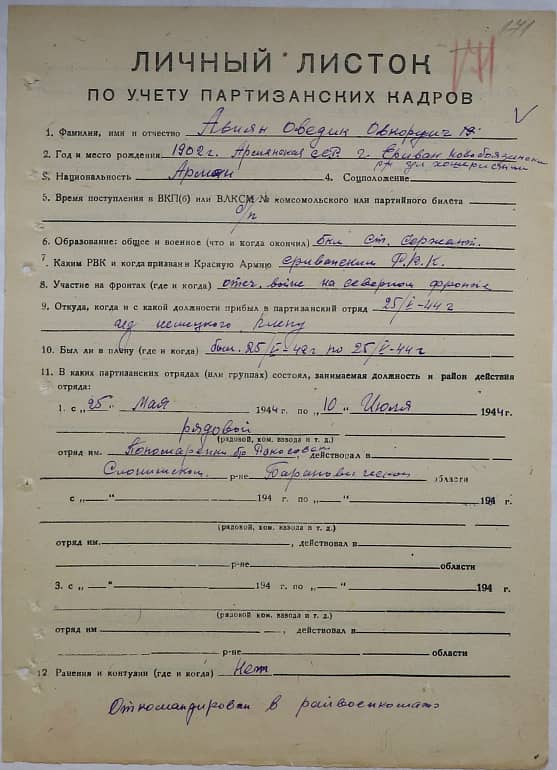 171
171
ЛИЧНЫЙ ЛИСТОК
ПО УЧЕТУ ПАРТИЗАНСКИХ КАДРОВ
1. Фамилия, имя и отчество Авиян Оведик
2. Год и место рождения 1902 г. Армянская ССР. г. Ериван
3. Национальность Армян 4. Соцположение
5. Время поступления в ВКП(б) или ВЛКСМ № комсомольского или партийного билета
б/п
6. Образование: общее и военное (что и когда окончил) 6 кл. Ст. Сержант.
7. Каким РВК и когда призван в Красную Армию Ериванским Р.В.К.
8. Участие на фронтах (где и когда) отеч. войне на северном фронте
9. Откуда, и с какой должности прибыл в партизанский отряд 25/V-44 г
из немецкого плену
10. Был ли в плену (где и когда) был. 25/V-42 г по 25/V-44 г
11. В каких партизанских отрядах (или группах) состоял, занимаемая должность и район действия
отряда:
1. с „25" Мая 1944 г. по „10" Июля 1944 г.
рядовой
(рядовой, ком. взвода и т. д.)
отряд им. Пономаренки бр. действовал в
Слонимском р-не Барановической области
с „ " 194 г. по „ " 194 г.
(рядовой, ком. взвода и т. д.)
отряд им. , действовал в
р-не области
3. с „ " 194 г. по „ " 194 г.
(рядовой, ком. взвода и т. д.)
отряд им , действовал в
р-не области
12 Ранения и контузии (где и когда) Нет
Откомандирован в райвоенкомат